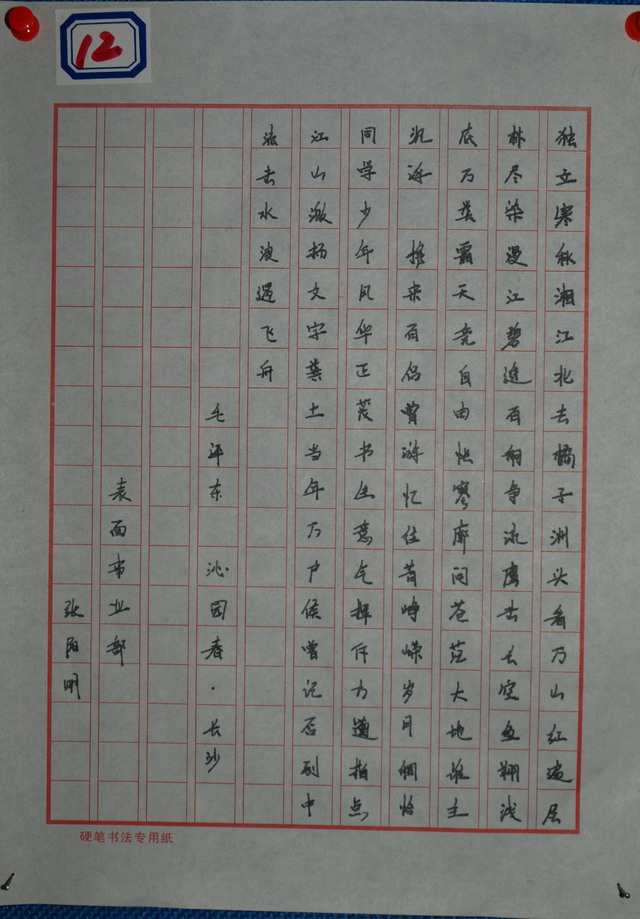 12
独立寒秋湘江北去橘子洲头看万山红遍层
林尽染漫江碧透百舸争流鹰击长空鱼翔浅
底万类霜天竞自由怅寥廓问苍茫大地谁主
沉浮 携来百侣曾游忆往昔峥嵘岁月稠恰
同学少年风华正茂书生意气挥斥方遒指点
江山激扬文字粪土当年万户侯曾记否到中
流击水浪遏飞舟
毛泽东 沁园春·长沙
表面事业部
张阳明
硬笔书法专用纸